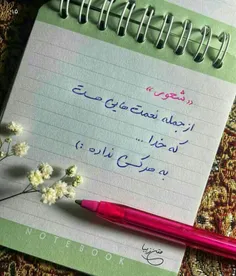 «شعور»
از جمله نعمت هایی هست
که خدا ...
به هر کسی نداده :)
NOTEBOOK